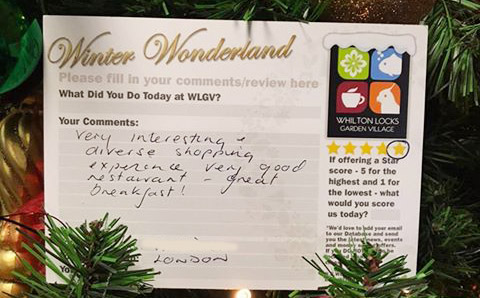 Winter Wonderland
Please fill in your comments/review here
What Did You Do Today at WLGV?
Your Comments:
Very interesting +
diverse shopping
experience very good
restaurant - great
breakfast!
LONDON
WHILTON LOCKS
GARDEN VILLAGE
If offering a Star
score - 5 for the
highest and 1 for
the lowest - what
would you score
us today?
*We'd love to add your email
to our Database and send
you the latest news, events
and money